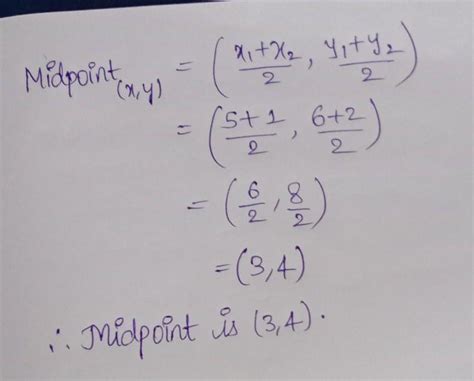 Midpoint(x,y) = (x₁+x₂/2, y₁+y₂/2)
= (5+1/2, 6+2/2)
= (6/2, 8/2)
=(3,4)
∴ Midpoint is (3,4).